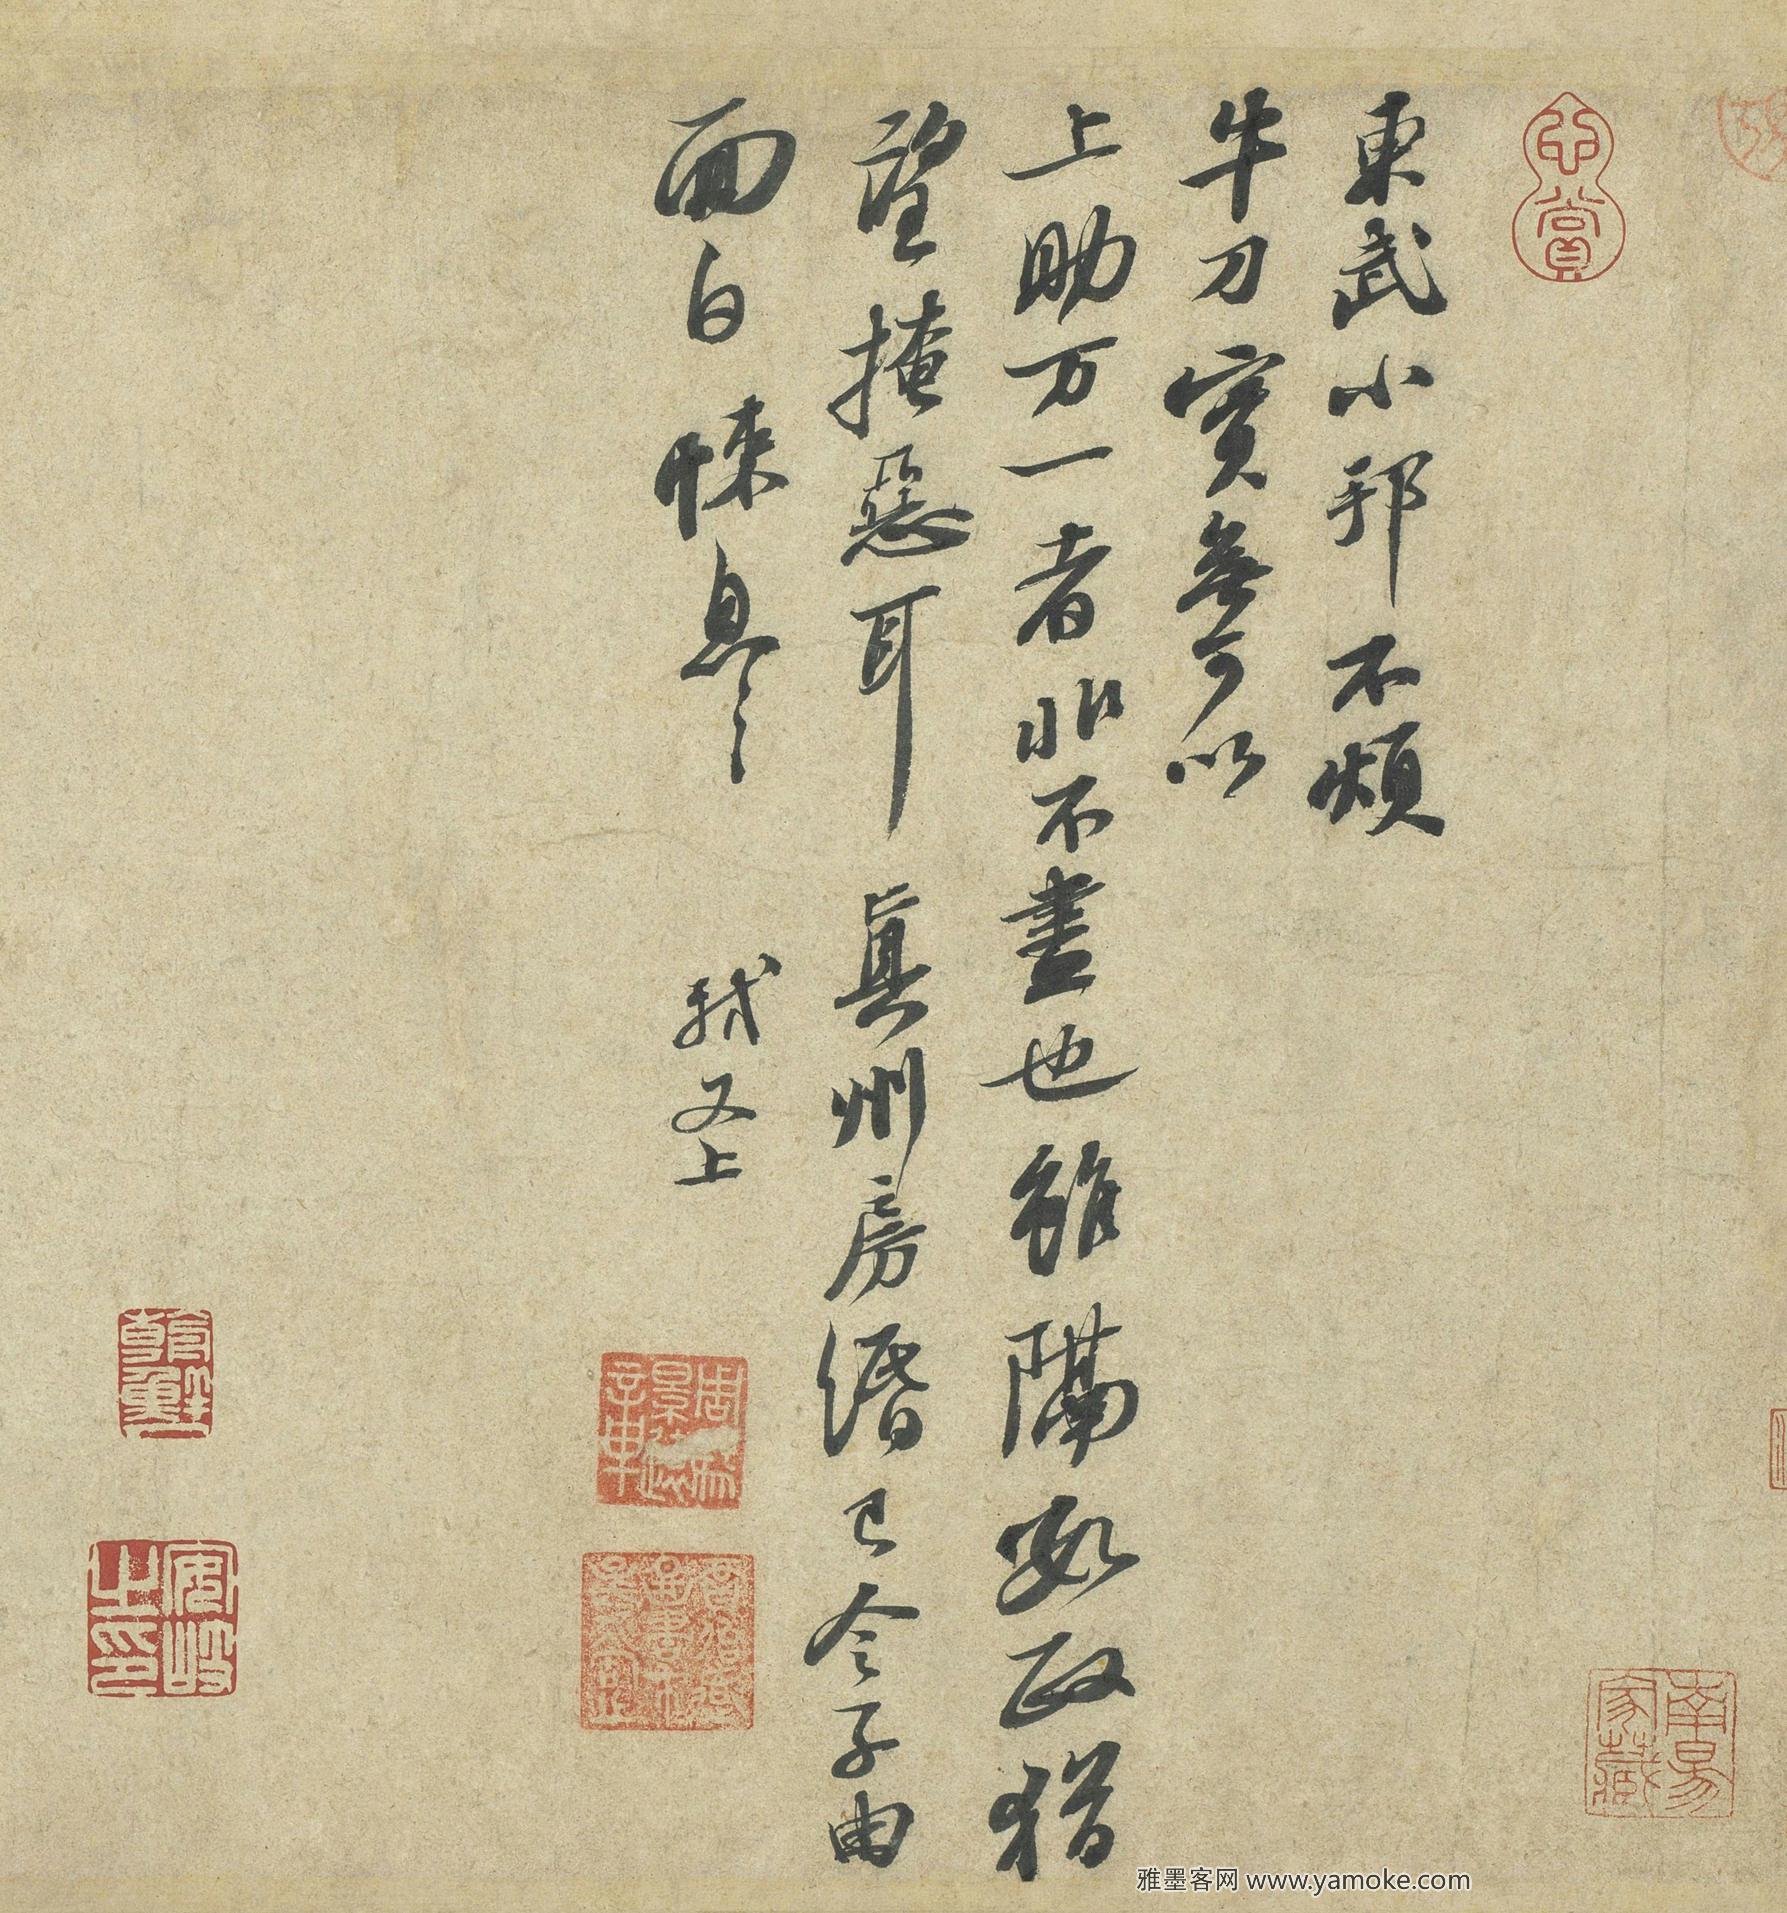 心賞
東武小邦不煩
牛刀實無可以
上助万一者非不盡也雖隔數政猶
望掩惡耳真州房緡已令子由
面白悚息〻 軾又上
安岐之印
雅墨客网 www.yamoke.com